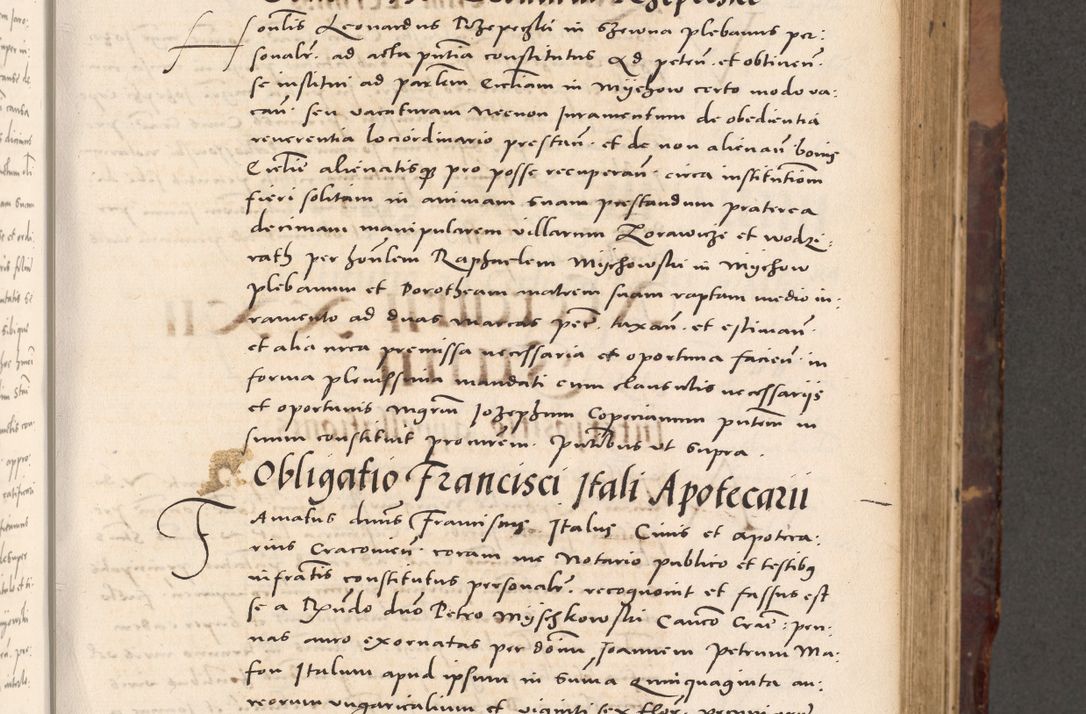 Honlis Leonardus Rzepeczki in Szewna plebanus per:
sonalr. ad acta pntia constitutus Ad peten. et obtinen.
se institui ad parlem Ecclliam in Mychow certo modo va:
can. seu vacaturam Necnon Juramentum de obedientia
reuerentia lociordinario prestan. et de non alienan. bonis
Eccliae alienatisque pro posse recuperan. circa institutionem
fieri solitam in animam suam prestandum praterea
decimam manipularem villarum Zorawicze et wodzi:
rath per honlem Raphaelem Mychowski in Mychow
plebanum et Dorotheam matrem suam raptam medio iu:
ramento ad duas marcas pec. taxan. et estiman.
et alia circa premissa necessaria et oportuna facien. in
forma plenissima mandati cum clausulis necessariis
et oportunis Mgrum Jozephum Copecianum pntem in
suum constituit procurem. Pntibus ut supra.
Obligatio Francisci Itali Apotecarii
Famatus dnus Franciscus Italus Ciuis et apoteca:
rius Cracouien. coram me Notario publico et testibus
infratis constitutus personalr. recognouit et fassus est
se a Rndo dno Petro Myschkowski Canco Crac: pen:
nas auro exornatas per domin Joannem Petrum Ma:
fon Italum apud ipsum in suma Quinquaginta au:
reorum vngaricalium et viginti sex flor.